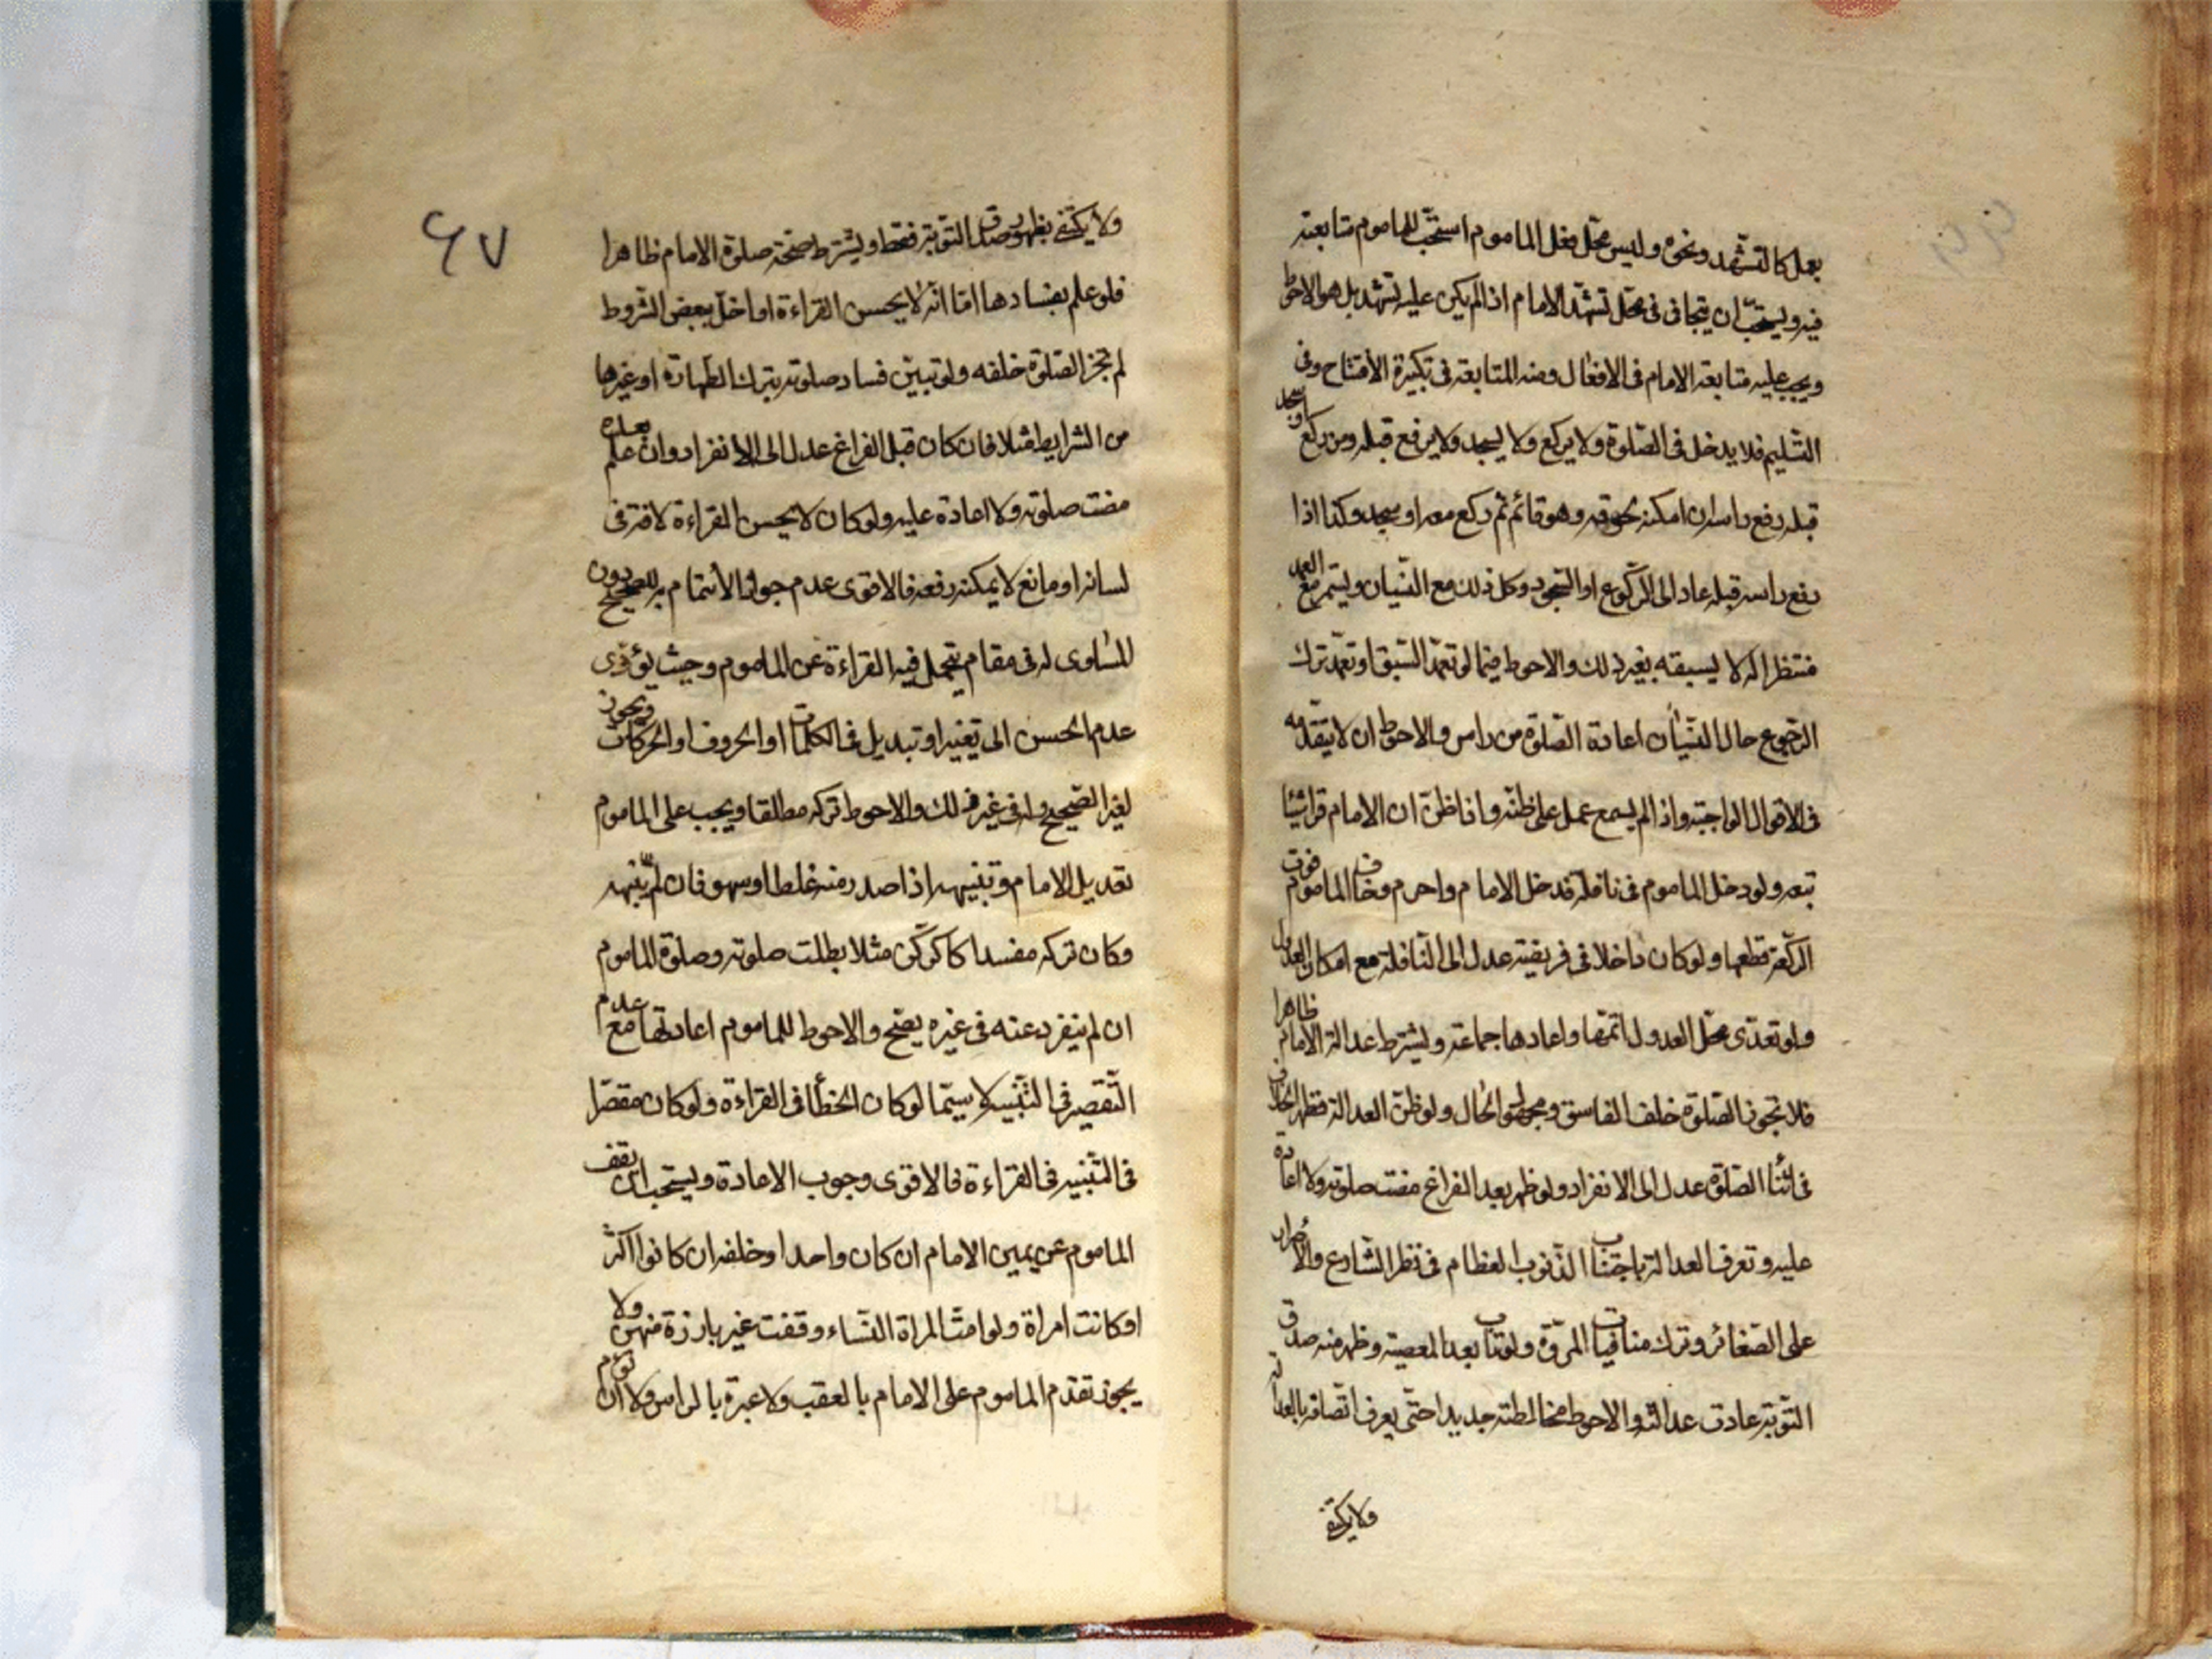 بعمل كالتشهد ونحوه وليس محل فعل الماموم استحب للماموم متابعته
فيه ويستحب ان يتجافى في محل تشهد الامام اذا لم يكن عليه تشهد بل هو الاحوط
ويجب عليه متابعة الامام في الافعال ومنه المتابعة في تكبيرة الافتتاح وفي
التسليم فلا يدخل في الصلوة ولا يركع ولا يسجد ولا يرفع قبله ومن ركع او سجد
قبله رفع راسه ان امكنه لحوقه وهو قائم ثم ركع معه او سجد وكذا اذا
رفع راسه قبله عاد الى الركوع او السجود وكل ذلك مع النسيان ويستمر مع العمد
منتظرا له لا يسبقه بغير ذلك والاحوط فيما لو تعمد السبق او تعمد ترك
الرجوع حال النسيان اعادة الصلوة من راس والاحوط ان لا يتقدمه
في الاقوال الواجبة واذا لم يسمع عمل على ظنه واذا ظن ان الامام قرا شيئا
تبعه ولو دخل الماموم في نافلة فدخل الامام واحرم وخاف الماموم فوت
الركعة قطعها ولو كان داخلا في فريضة عدل الى النافلة مع امكان العدول
ولو تعدى محل العدول اتمها واعادها جماعة ويشترط عدالة الامام ظاهرا
فلا تجوز الصلوة خلف الفاسق ومجهول الحال ولو ظن العدالة فظهر الخلاف
في اثناء الصلوة عدل الى الانفراد ولو ظهر بعد الفراغ مضت صلوته ولا اعادة
عليه وتعرف العدالة باجتناب الذنوب العظام في نظر الشارع والأصرار
على الصغائر وترك منافيات المروة ولو تاب بعد المعصية وظهر منه صدق
التوبة عادت عدالته والاحوط مخالطته جديدا حتى يعرف اتصافه بالعدالة
ولا يكتفى
٦٧
ولا يكتفى بظهور صدق التوبة فقط ويشترط صحة صلوة الامام ظاهرا
فلو علم بفسادها اما انه لا يحسن القراءة او اخل ببعض الشروط
لم تجز الصلوة خلفه ولو تبين فساد صلوته بترك الطهارة او غيرها
من الشرايط مثلا فان كان قبل الفراغ عدل الى الانفراد وان علم بعده
مضت صلوته ولا اعادة عليه ولو كان لا يحسن القراءة لافة في
لسانه او مانع لا يمكنه رفعه فالاقوى عدم جواز الأئتمام به للصحيح دون
المساوى له في مقام يتحمل فيه القراءة عن الماموم وحيث يؤدى
عدم الحسن الى تغيير او تبديل في الكلمات او الحروف او الحركات ويجوز
لغير الصحيح وله في غير ذلك والاحوط تركه مطلقا ويجب على الماموم
تعديل الامام وتنبيهه اذا صدر منه غلط او سهو فان لم ينبهه
وكان تركه مفسدا كالركن مثلا بطلت صلوته وصلوة الماموم
ان لم ينفرد عنه في غيره يصح والاحوط للماموم اعادتها مع عدم
التقصير في التنبيه لا سيما لو كان الخطأ في القراءة ولو كان مقصرا
في التنبيه في القراءة فالاقوى وجوب الاعادة ويستحب ان يقف
الماموم عن يمين الامام ان كان واحدا وخلفه ان كانوا اكثر
او كانت امراة ولو امت المراة النساء وقفت غير بارزة منهن ولا
يجوز تقدم الماموم على الامام بالعقب ولا عبرة بالراس ولا ان يؤم